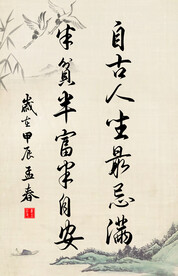 自古人生最忌满
半贫半富半自安
岁在甲辰孟春